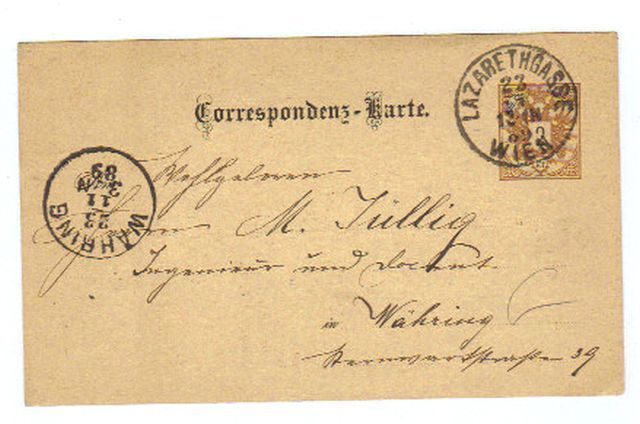 Correspondenz-Karte.
LAZARETHGASSE
WIEN
23
WÄHRING
23
11
89
Wohlgeboren
Herrn M. Jüllig
Ingenieur und Docent
in Währing
Sternwartstraße 39